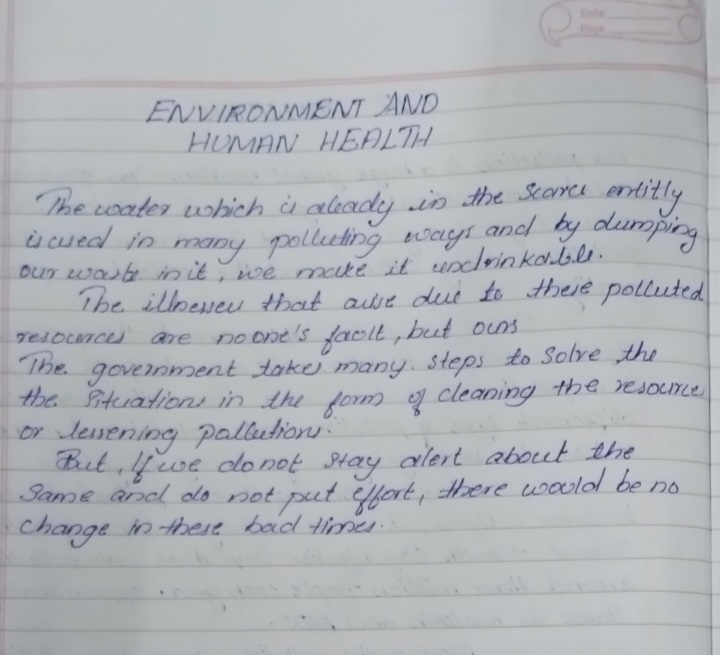 Date
Page
ENVIRONMENT AND
HUMAN HEALTH
The water which is already in the scarce entitly
is used in many polluting ways and by dumping
our waste in it, we make it undrinkable.
The illnesses that arise due to these polluted
resources are no one's fault, but ours
The government takes many steps to solve the
the situations in the form of cleaning the resource
or lessening pollutions.
But, If we do not stay alert about the
same and do not put effort, there would be no
change in these bad times.